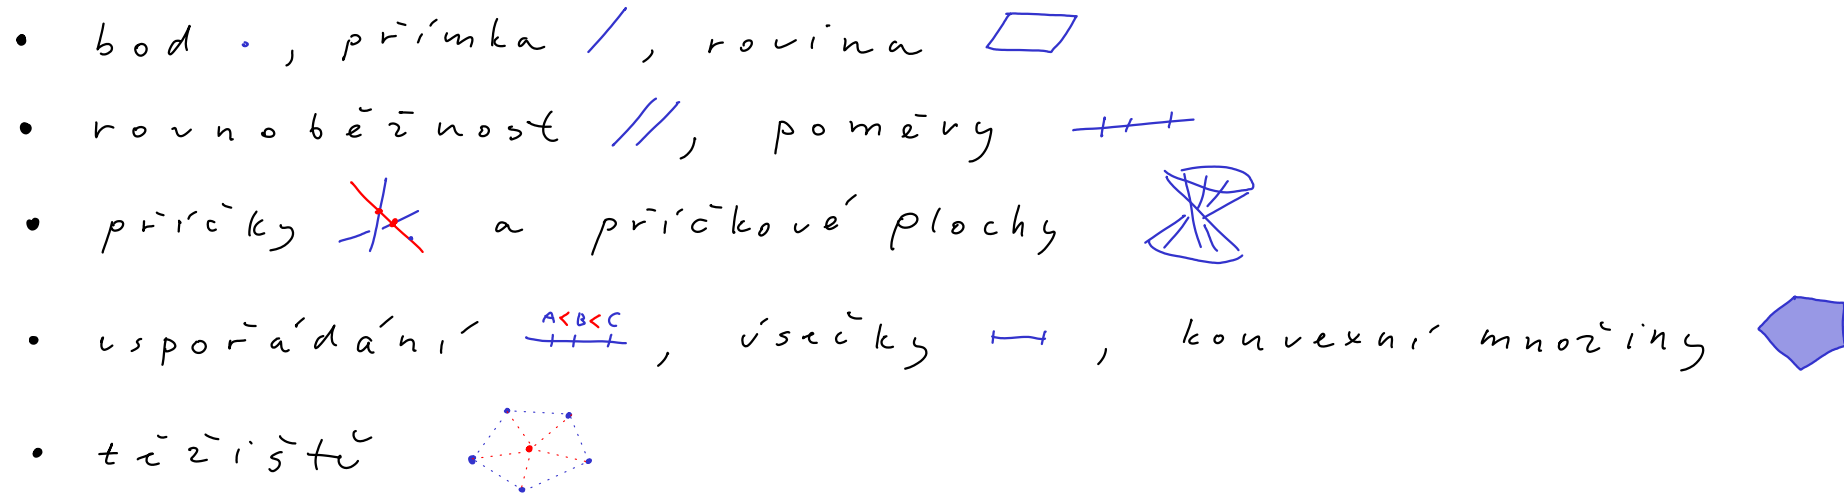 • bod , přímka , rovina
• rovnoběžnost , poměry
• příčky a příčkové plochy
• uspořádání A<B<C , úsečky , konvexní množiny
• těžiště